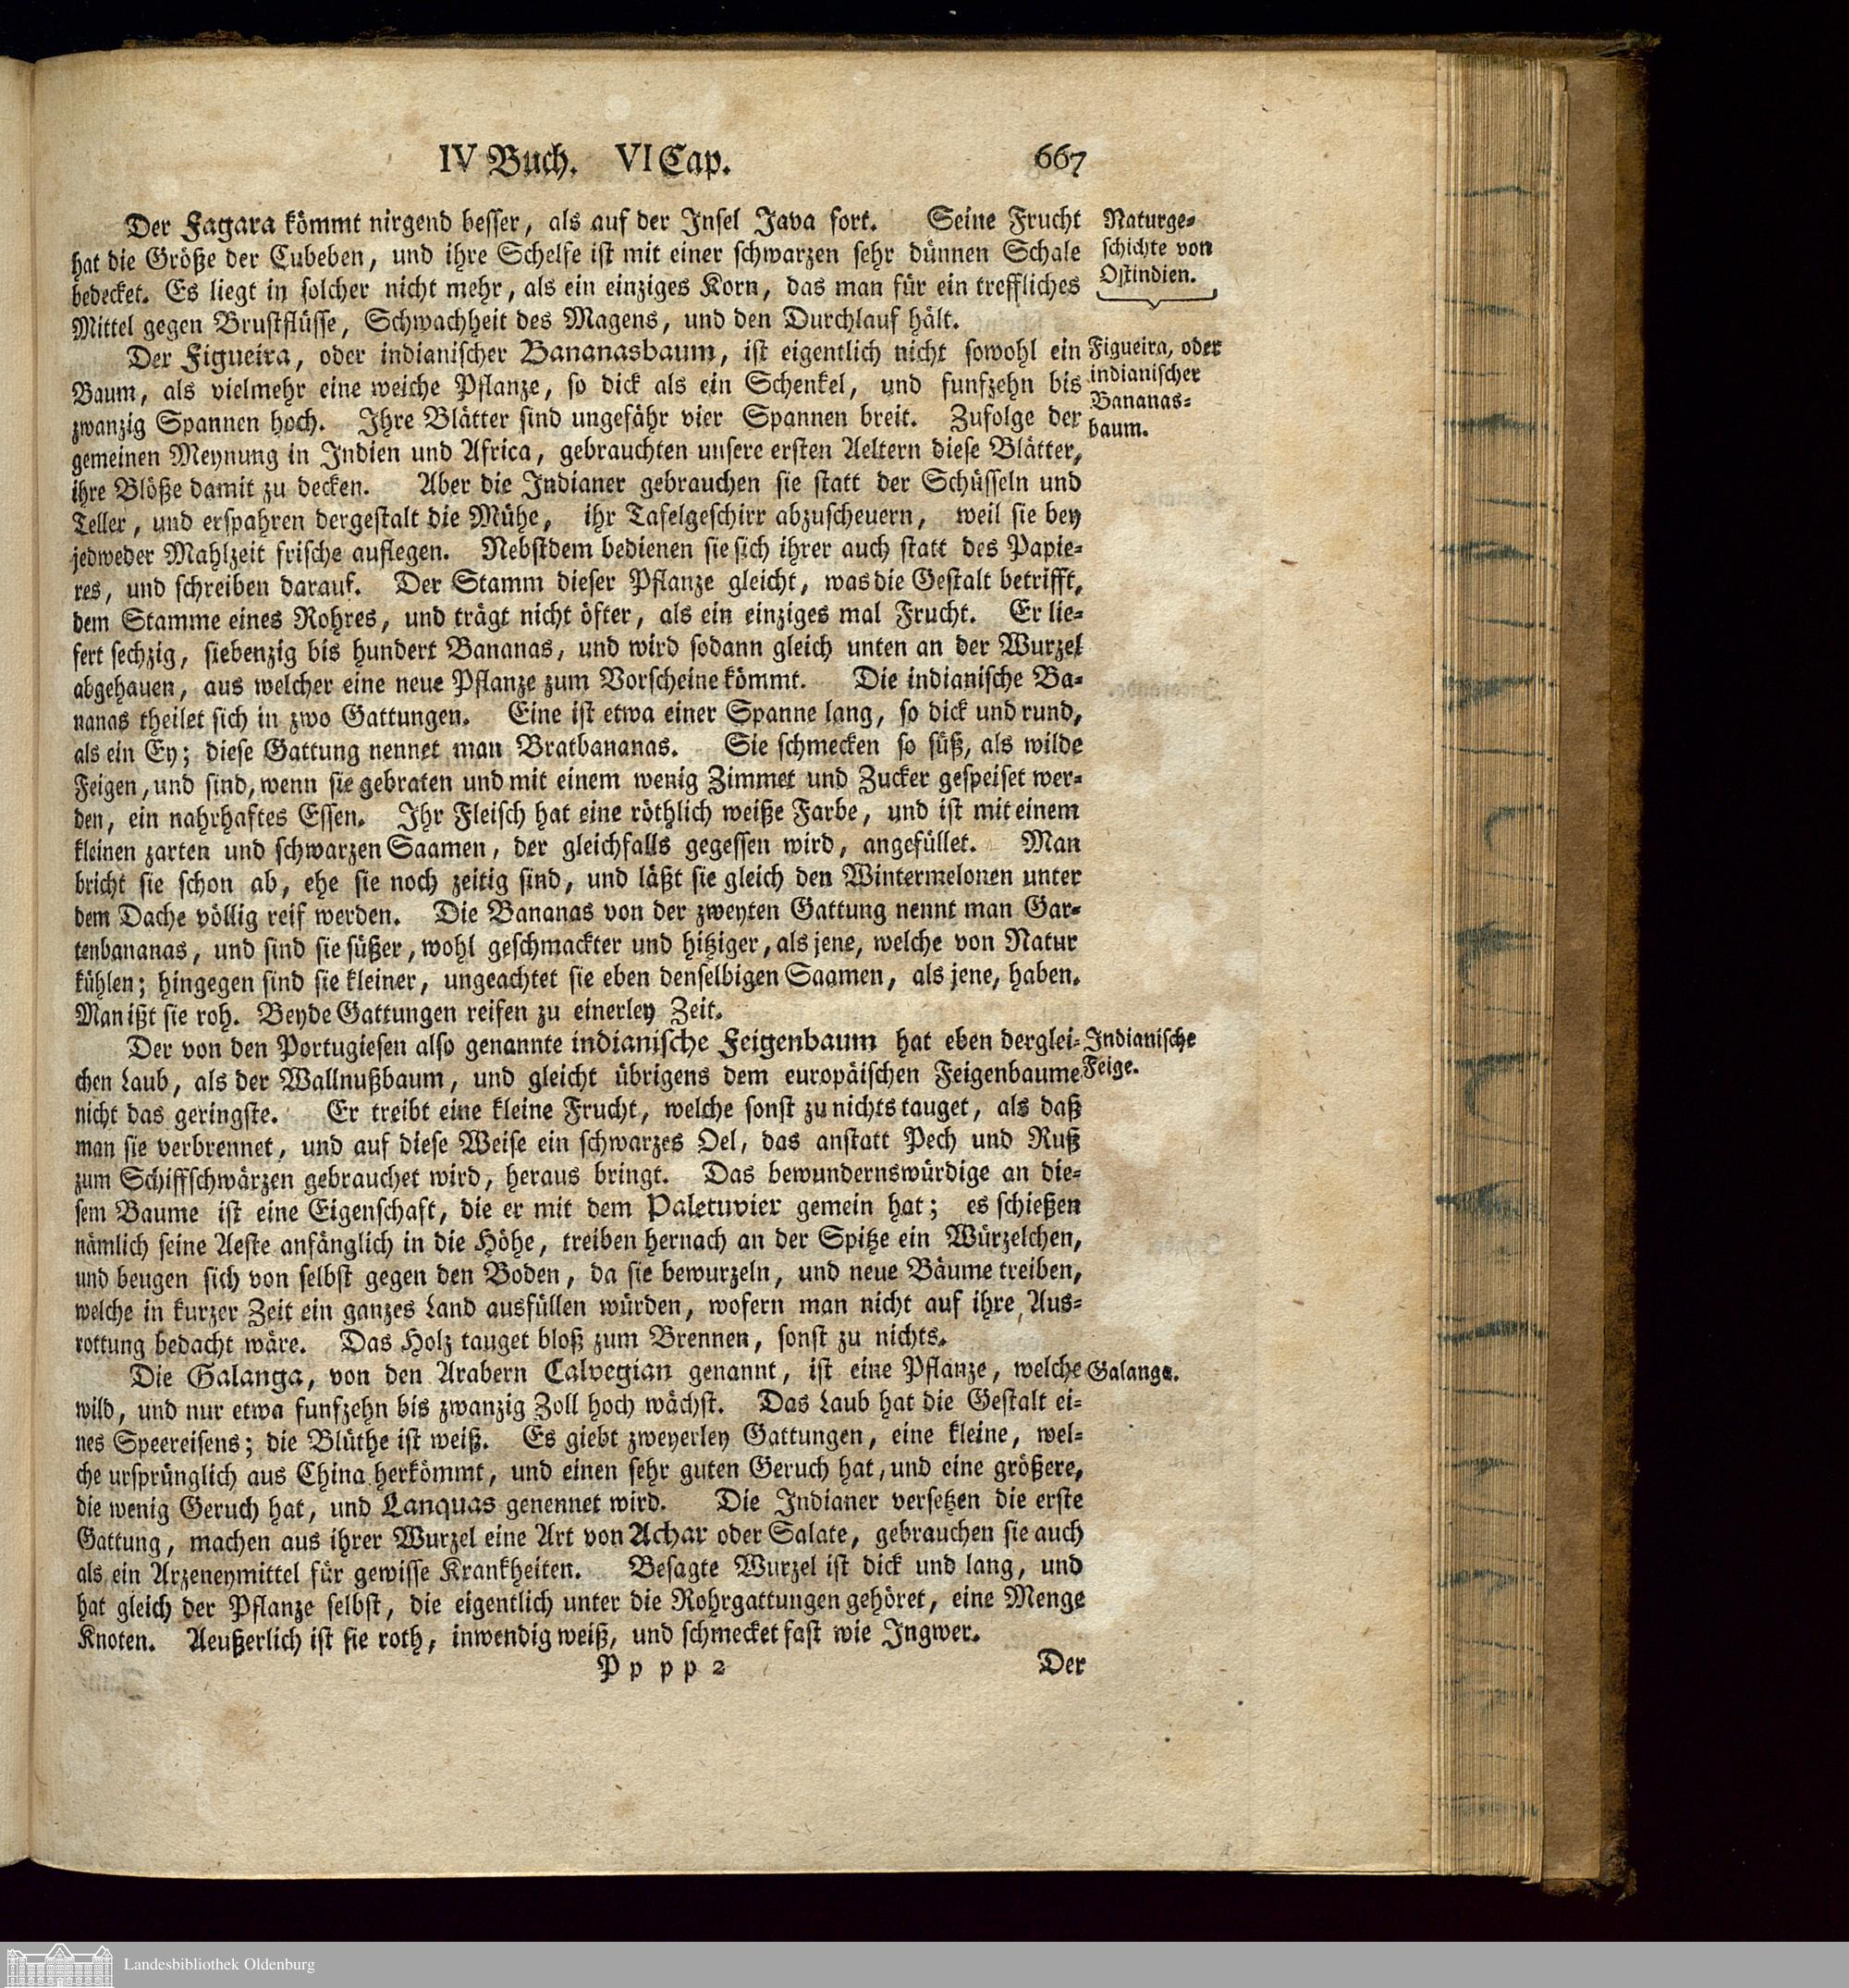 IV Buch. VI Cap. 667
Der Fagara kömmt nirgend besser, als auf der Insel Java fort. Seine Frucht
hat die Größe der Cubeben, und ihre Schelfe ist mit einer schwarzen sehr dünnen Schale
bedecket. Es liegt in solcher nicht mehr, als ein einziges Korn, das man für ein treffliches
Mittel gegen Brustflüsse, Schwachheit des Magens, und den Durchlauf hält.
Naturge-
schichte von
Ostindien.
Der Figueira, oder indianischer Bananasbaum, ist eigentlich nicht sowohl ein
Baum, als vielmehr eine weiche Pflanze, so dick als ein Schenkel, und funfzehn bis
zwanzig Spannen hoch. Ihre Blätter sind ungefähr vier Spannen breit. Zufolge der
gemeinen Meynung in Indien und Africa, gebrauchten unsere ersten Aeltern diese Blätter,
ihre Blöße damit zu decken. Aber die Indianer gebrauchen sie statt der Schüsseln und
Teller, und erspahren dergestalt die Mühe, ihr Tafelgeschirr abzuscheuern, weil sie bey
jedweder Mahlzeit frische auflegen. Nebstdem bedienen sie sich ihrer auch statt des Papie-
res, und schreiben darauf. Der Stamm dieser Pflanze gleicht, was die Gestalt betrifft,
dem Stamme eines Rohres, und trägt nicht öfter, als ein einziges mal Frucht. Er lie-
fert sechzig, siebenzig bis hundert Bananas, und wird sodann gleich unten an der Wurzel
abgehauen, aus welcher eine neue Pflanze zum Vorscheine kömmt. Die indianische Ba-
nanas theilet sich in zwo Gattungen. Eine ist etwa einer Spanne lang, so dick und rund,
als ein Ey; diese Gattung nennet man Bratbananas. Sie schmecken so süß, als wilde
Feigen, und sind, wenn sie gebraten und mit einem wenig Zimmet und Zucker gespeiset wer-
den, ein nahrhaftes Essen. Ihr Fleisch hat eine röthlich weiße Farbe, und ist mit einem
kleinen zarten und schwarzen Saamen, der gleichfalls gegessen wird, angefüllet. Man
bricht sie schon ab, ehe sie noch zeitig sind, und läßt sie gleich den Wintermelonen unter
dem Dache völlig reif werden. Die Bananas von der zweyten Gattung nennt man Gar-
tenbananas, und sind sie süßer, wohl geschmackter und hitziger, als jene, welche von Natur
kühlen; hingegen sind sie kleiner, ungeachtet sie eben denselbigen Saamen, als jene, haben.
Man ißt sie roh. Beyde Gattungen reifen zu einerley Zeit.
Figueira, oder
indianischer
Bananas-
baum.
Der von den Portugiesen also genannte indianische Feigenbaum hat eben derglei-
chen Laub, als der Wallnußbaum, und gleicht übrigens dem europäischen Feigenbaume
nicht das geringste. Er treibt eine kleine Frucht, welche sonst zu nichts tauget, als daß
man sie verbrennet, und auf diese Weise ein schwarzes Oel, das anstatt Pech und Ruß
zum Schiffschwärzen gebrauchet wird, heraus bringt. Das bewundernswürdige an die-
sem Baume ist eine Eigenschaft, die er mit dem Paletuvier gemein hat; es schießen
nämlich seine Aeste anfänglich in die Höhe, treiben hernach an der Spitze ein Würzelchen,
und beugen sich von selbst gegen den Boden, da sie bewurzeln, und neue Bäume treiben,
welche in kurzer Zeit ein ganzes Land ausfüllen würden, wofern man nicht auf ihre Aus-
rottung bedacht wäre. Das Holz tauget bloß zum Brennen, sonst zu nichts.
Indianische
Feige.
Die Galanga, von den Arabern Calvegian genannt, ist eine Pflanze, welche
wild, und nur etwa funfzehn bis zwanzig Zoll hoch wächst. Das Laub hat die Gestalt ei-
nes Speereisens; die Blüthe ist weiß. Es giebt zweyerley Gattungen, eine kleine, wel-
che ursprünglich aus China herkömmt, und einen sehr guten Geruch hat, und eine größere,
die wenig Geruch hat, und Lanquas genennet wird. Die Indianer versetzen die erste
Gattung, machen aus ihrer Wurzel eine Art von Achar oder Salate, gebrauchen sie auch
als ein Arzeneymittel für gewisse Krankheiten. Besagte Wurzel ist dick und lang, und
hat gleich der Pflanze selbst, die eigentlich unter die Rohrgattungen gehöret, eine Menge
Knoten. Aeußerlich ist sie roth, inwendig weiß, und schmecket fast wie Ingwer.
Galanga.
Pp pp 2 Der
Landesbibliothek Oldenburg